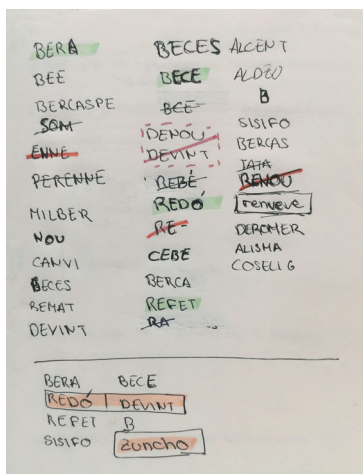 BERA
BEE
BERCASPE
SOM
ENNE
PERENNE
MILBER
NOU
CANVI
BECES
REMAT
DEVINT
BECES
BECE
BCE
DENOU
DEVINT
BEBÉ
REDÓ
RE-
CEBE
BERCA
REFET
RA
ALCENT
ALDEO
B
SISIFO
BERCAS
IATA
RENOU
renueve
DEROMER
ALISMA
COSELIG
BERA BECE
REDÓ DEVINT
REFET B
SISIFO Zuncho